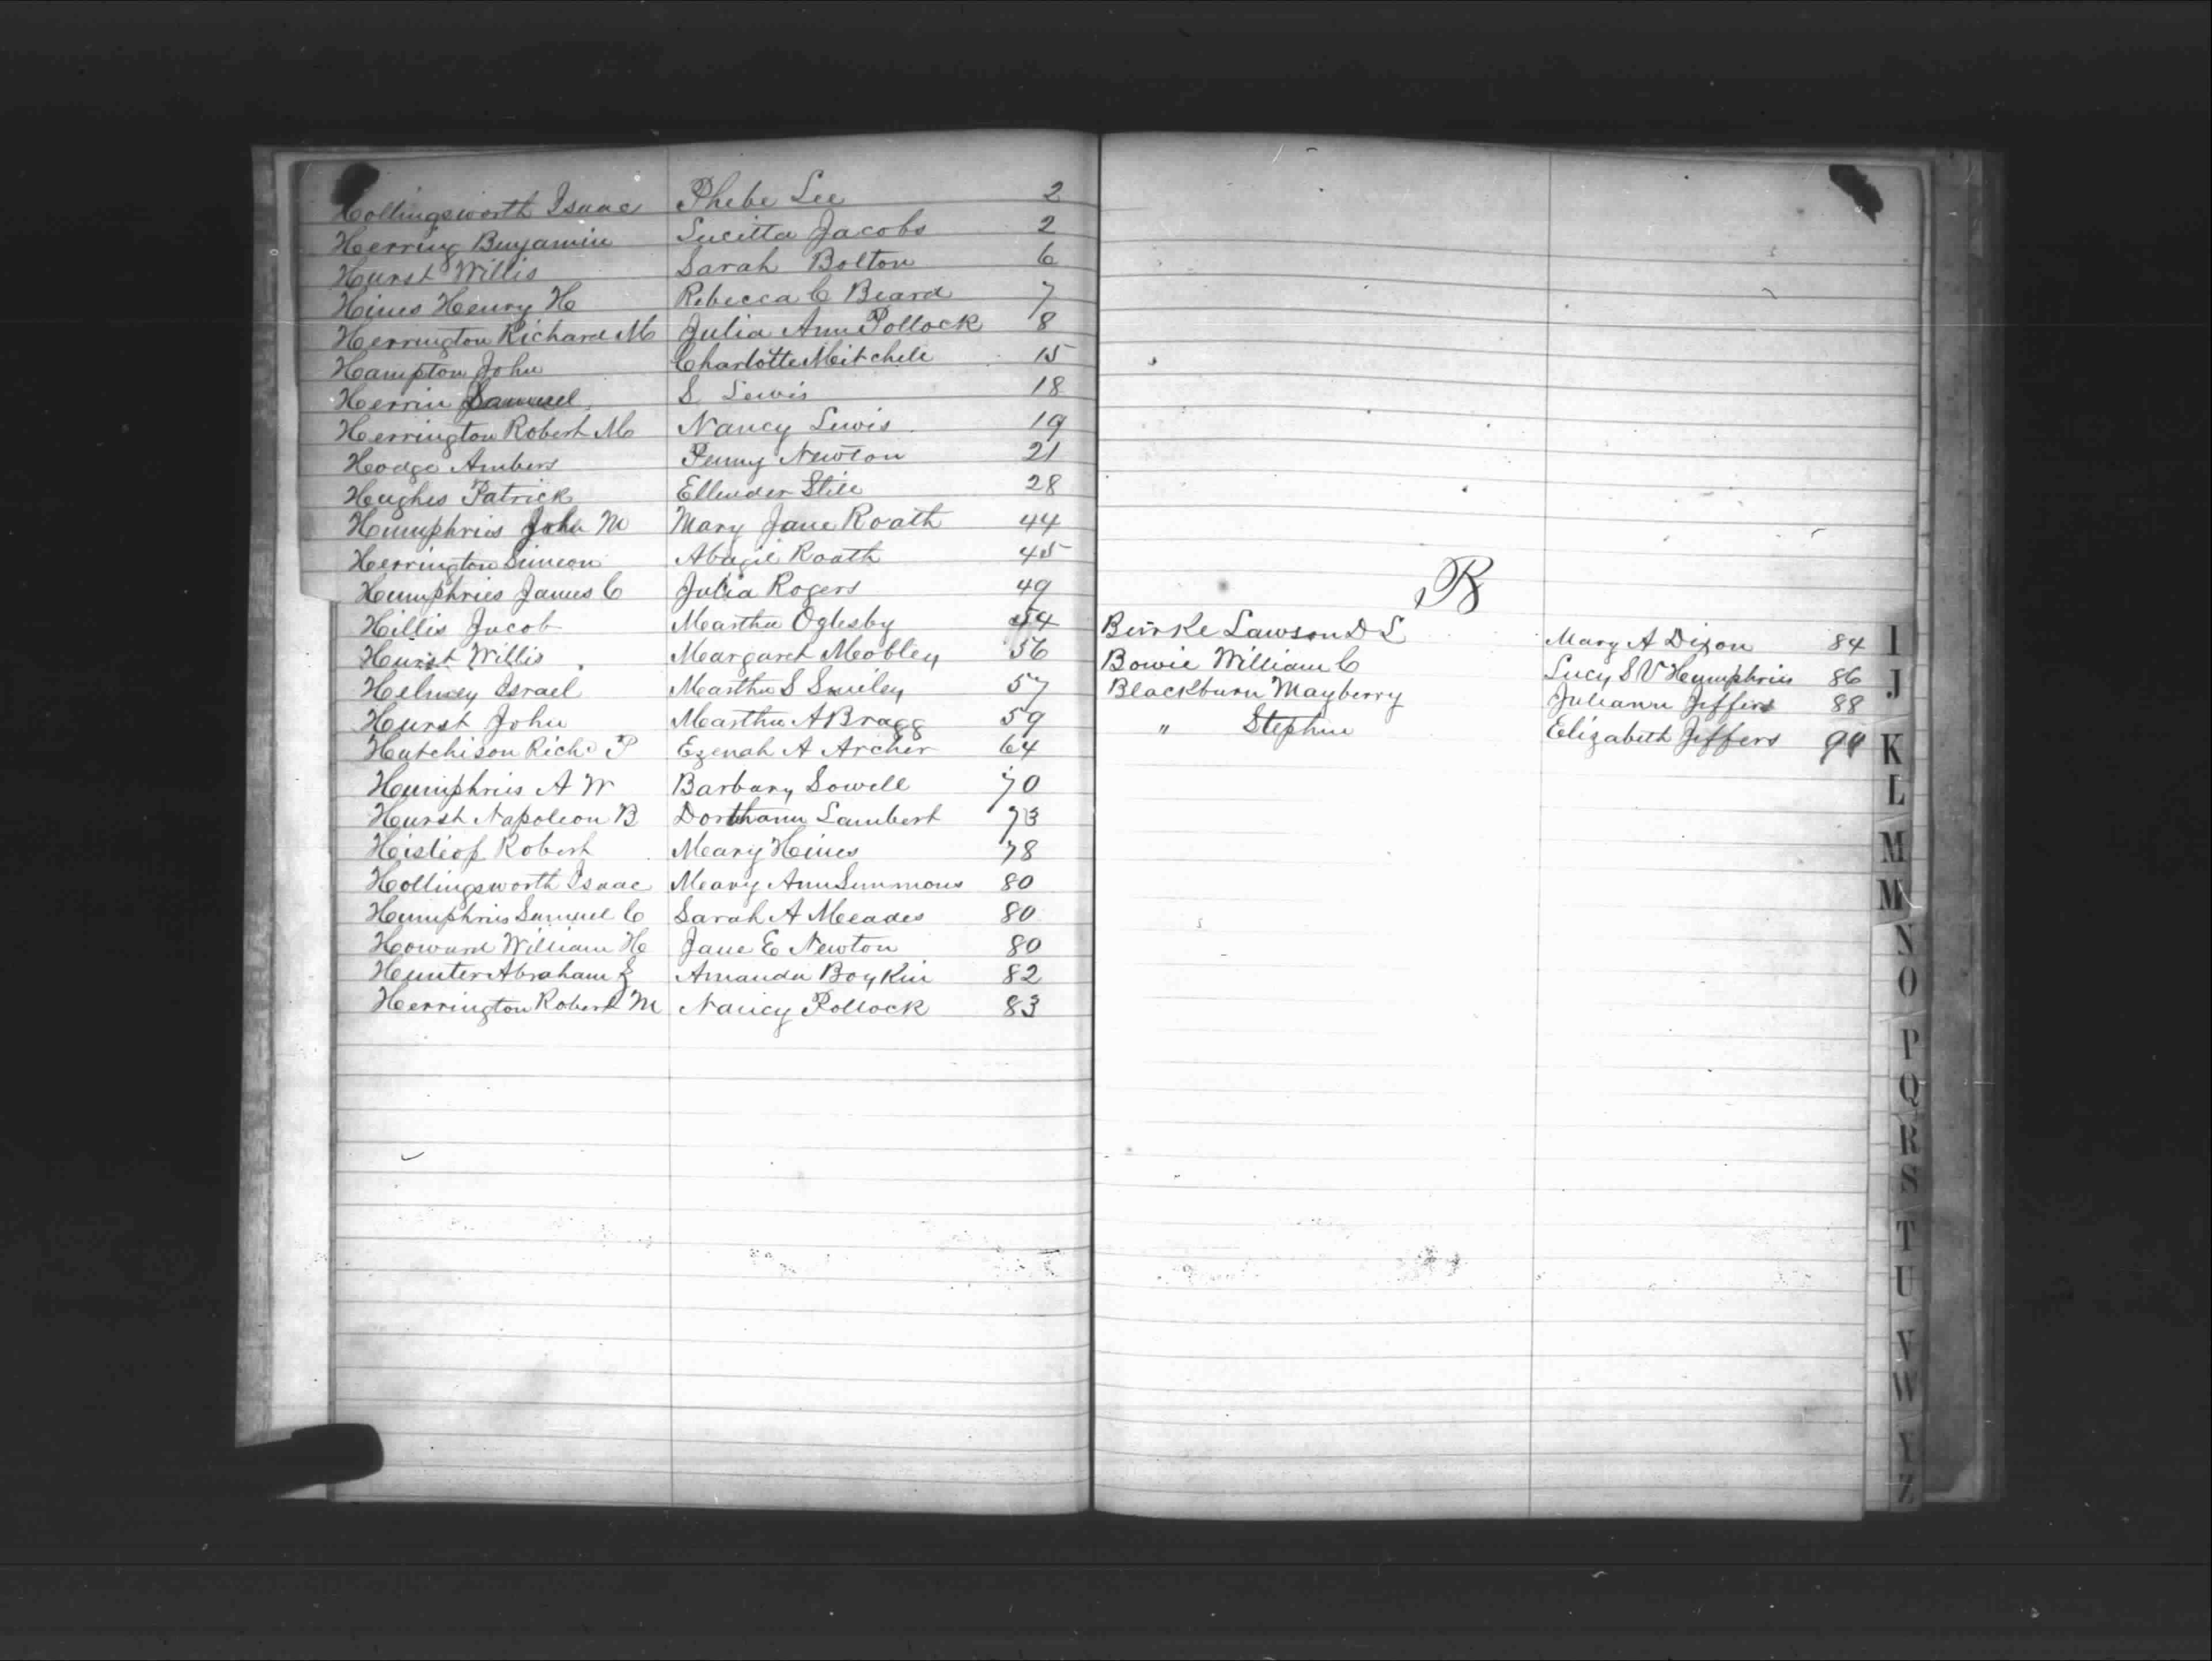 Hollingsworth Isaac Phebe Lee 2
Herring Benjamin Lucitta Jacobs 2
Hurst Willis Sarah Bolton 6
Hines Henry H Rebecca C Beard 7
Herrington Richard M Julia Ann Pollock 8
Hampton John Charlotte Mitchell 15
Herrin Samuel S. Lewis 18
Herrington Robert M Nancy Lewis 19
Hodge Ambers Penny Newton 21
Hughes Patrick Ellender Still 28
Humphries John M Mary Jane Roath 44
Herrington Simeon Abagil Roath 45
Humphries James C Julia Rogers 49
Hillis Jacob Martha Oglesby 54
Hurst Willis Margaret Mobley 56
Helmey Israel Martha S Smiley 57
Hurst John Martha A Bragg 59
Hutchison Richd P Ezenah A Archer 64
Humphries A W Barbary Sowell 70
Hurst Napoleon B Dorthann Lambert 73
Hislop Robert Mary Hines 78
Hollingsworth Isaac Mary Ann Simmons 80
Humphries Samuel C Sarah A Meades 80
Howard William H Jane E Newton 80
Hunter Abraham Z Amanda Boykin 82
Herrington Robert M Nancy Pollock 83
B
Burke Lawson D L Mary A Dixon 84
Bowie William C Lucy S V Humphries 86
Blackburn Mayberry Juliann Jeffers 88
" Stephen Elizabeth Jeffers
I
J
K
L
M
M
N
O
P
Q
R
S
T
U
V
W
Y
Z